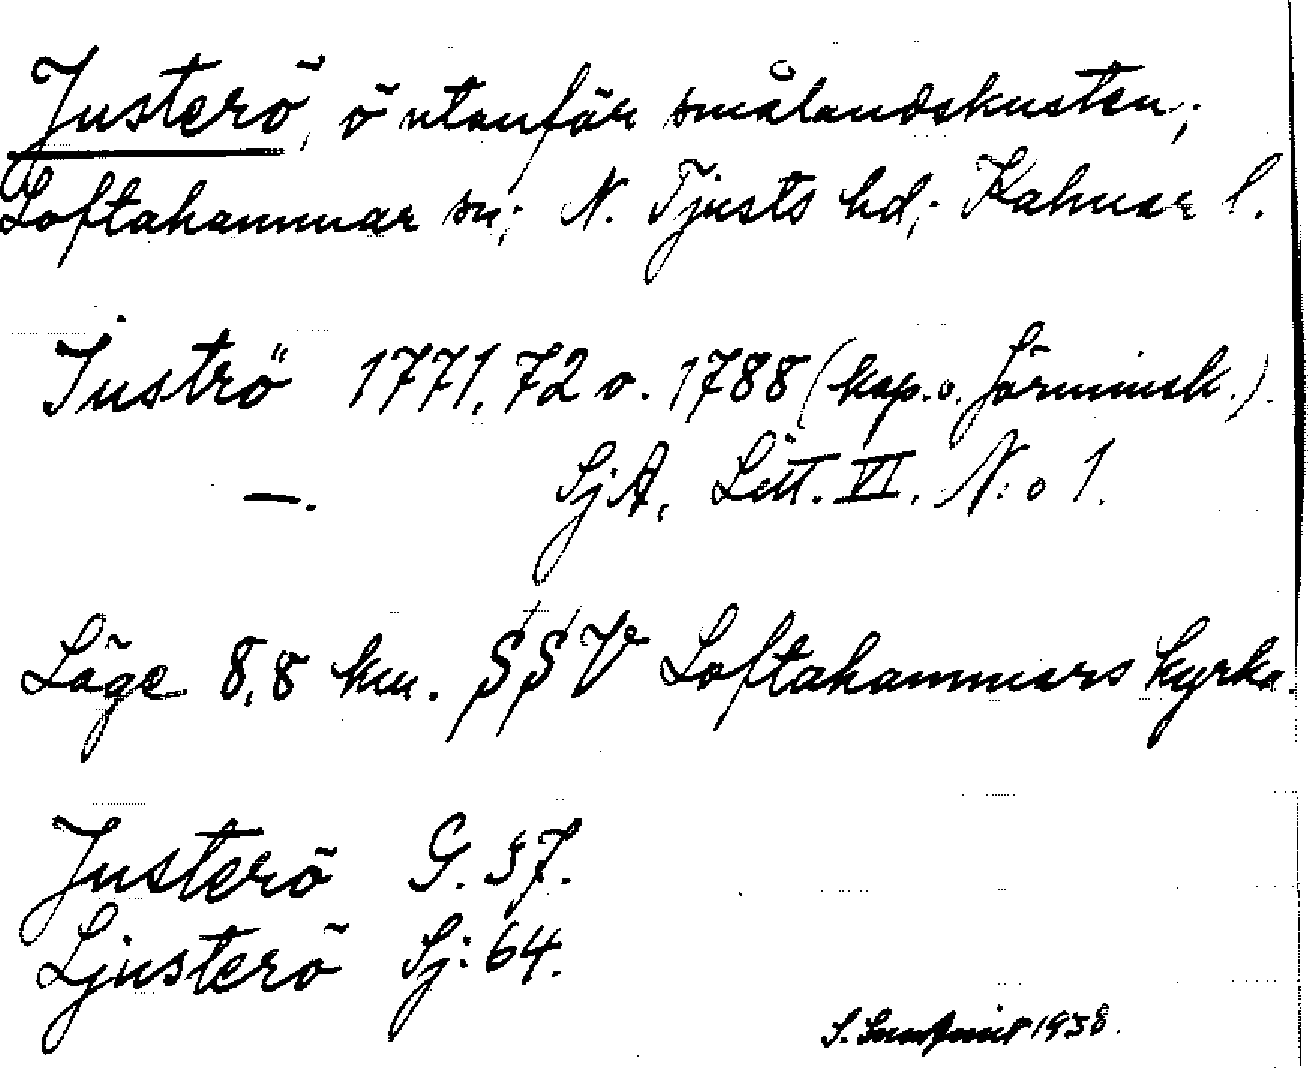 Justerö, ö utanför smålandskusten;
Loftahammar sn; N. Tjusts hd; Kalmar l.
Juströ 1771, 72 o. 1788 (kap. o. förminsk.).
—. SjA, Litt. VI. N:o 1.
Läge 8,8 km. SSV Loftahammars kyrka.
Justerö G. 37.
Ljusterö Sj: 64.
S. 1938.